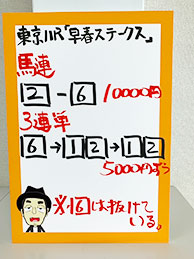 東京11R「早春ステークス」
馬連
2-6 10000円
3連単
6→12→12
5000円ずつ
※16は抜けて
いる。